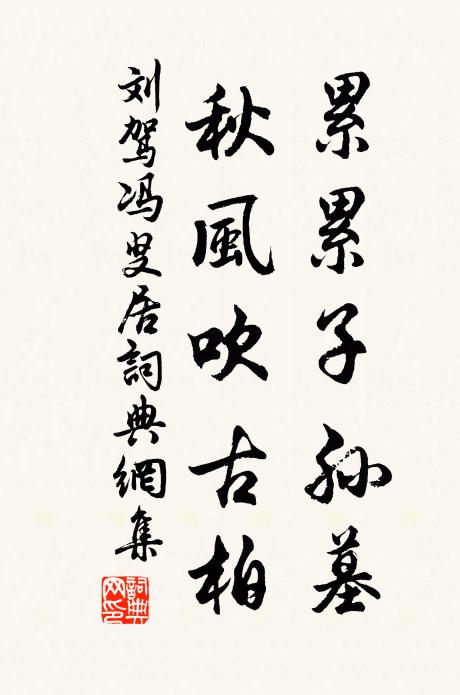 累累子孙墓
秋風吹古柏
刘驾冯叟居詞典網集
詞典网印